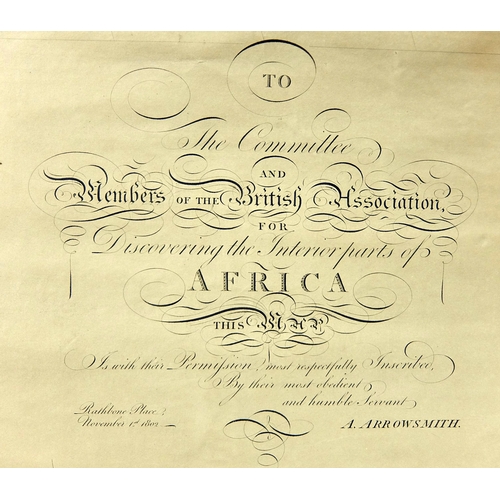 TO
The Committee
AND
Members OF THE British Association,
FOR
Discovering the Interior parts of
AFRICA
THIS MAP
Is with their Permission, most respectfully Inscribed,
By their most obedient
and humble Servant
Rathbone Place,
November 1st 1802
A. ARROWSMITH.